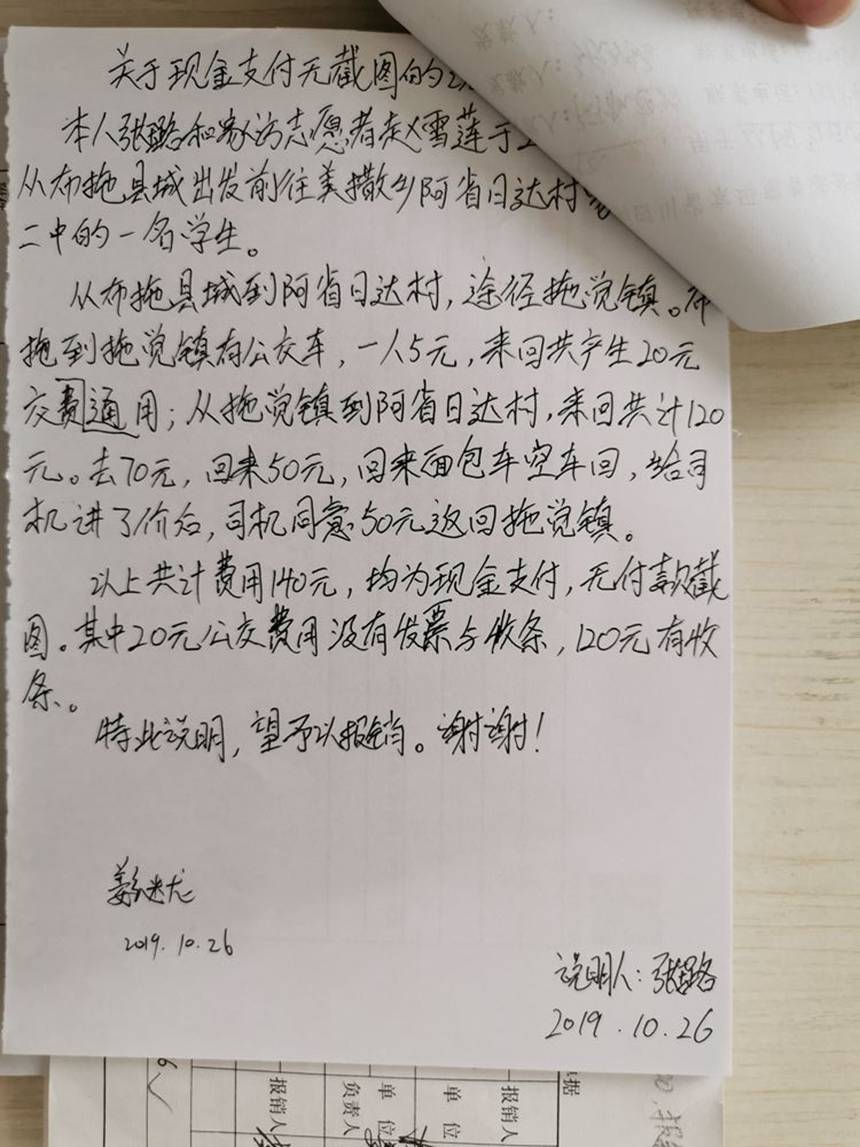 关于现金支付无截图的
本人张璐和家访志愿者赵雪莲于
从布拖县城出发前往美撒乡阿省日达村
二中的一名学生。
从布拖县城到阿省日达村，途径拖觉镇。布
拖到拖觉镇有公交车，一人5元，来回共产生20元
交通费用；从拖觉镇到阿省日达村，来回共计120
元。去70元，回来50元，回来面包车空车回，给司
机讲了价后，司机同意50元返回拖觉镇。
以上共计费用140元，均为现金支付，无付款截
图。其中20元公交费用没有发票与收条，120元有收
条。
特此说明，望予以报销。谢谢！
2019.10.26
说明人：张璐
2019.10.26
报销人
单位
负责人
单位
报销人
据